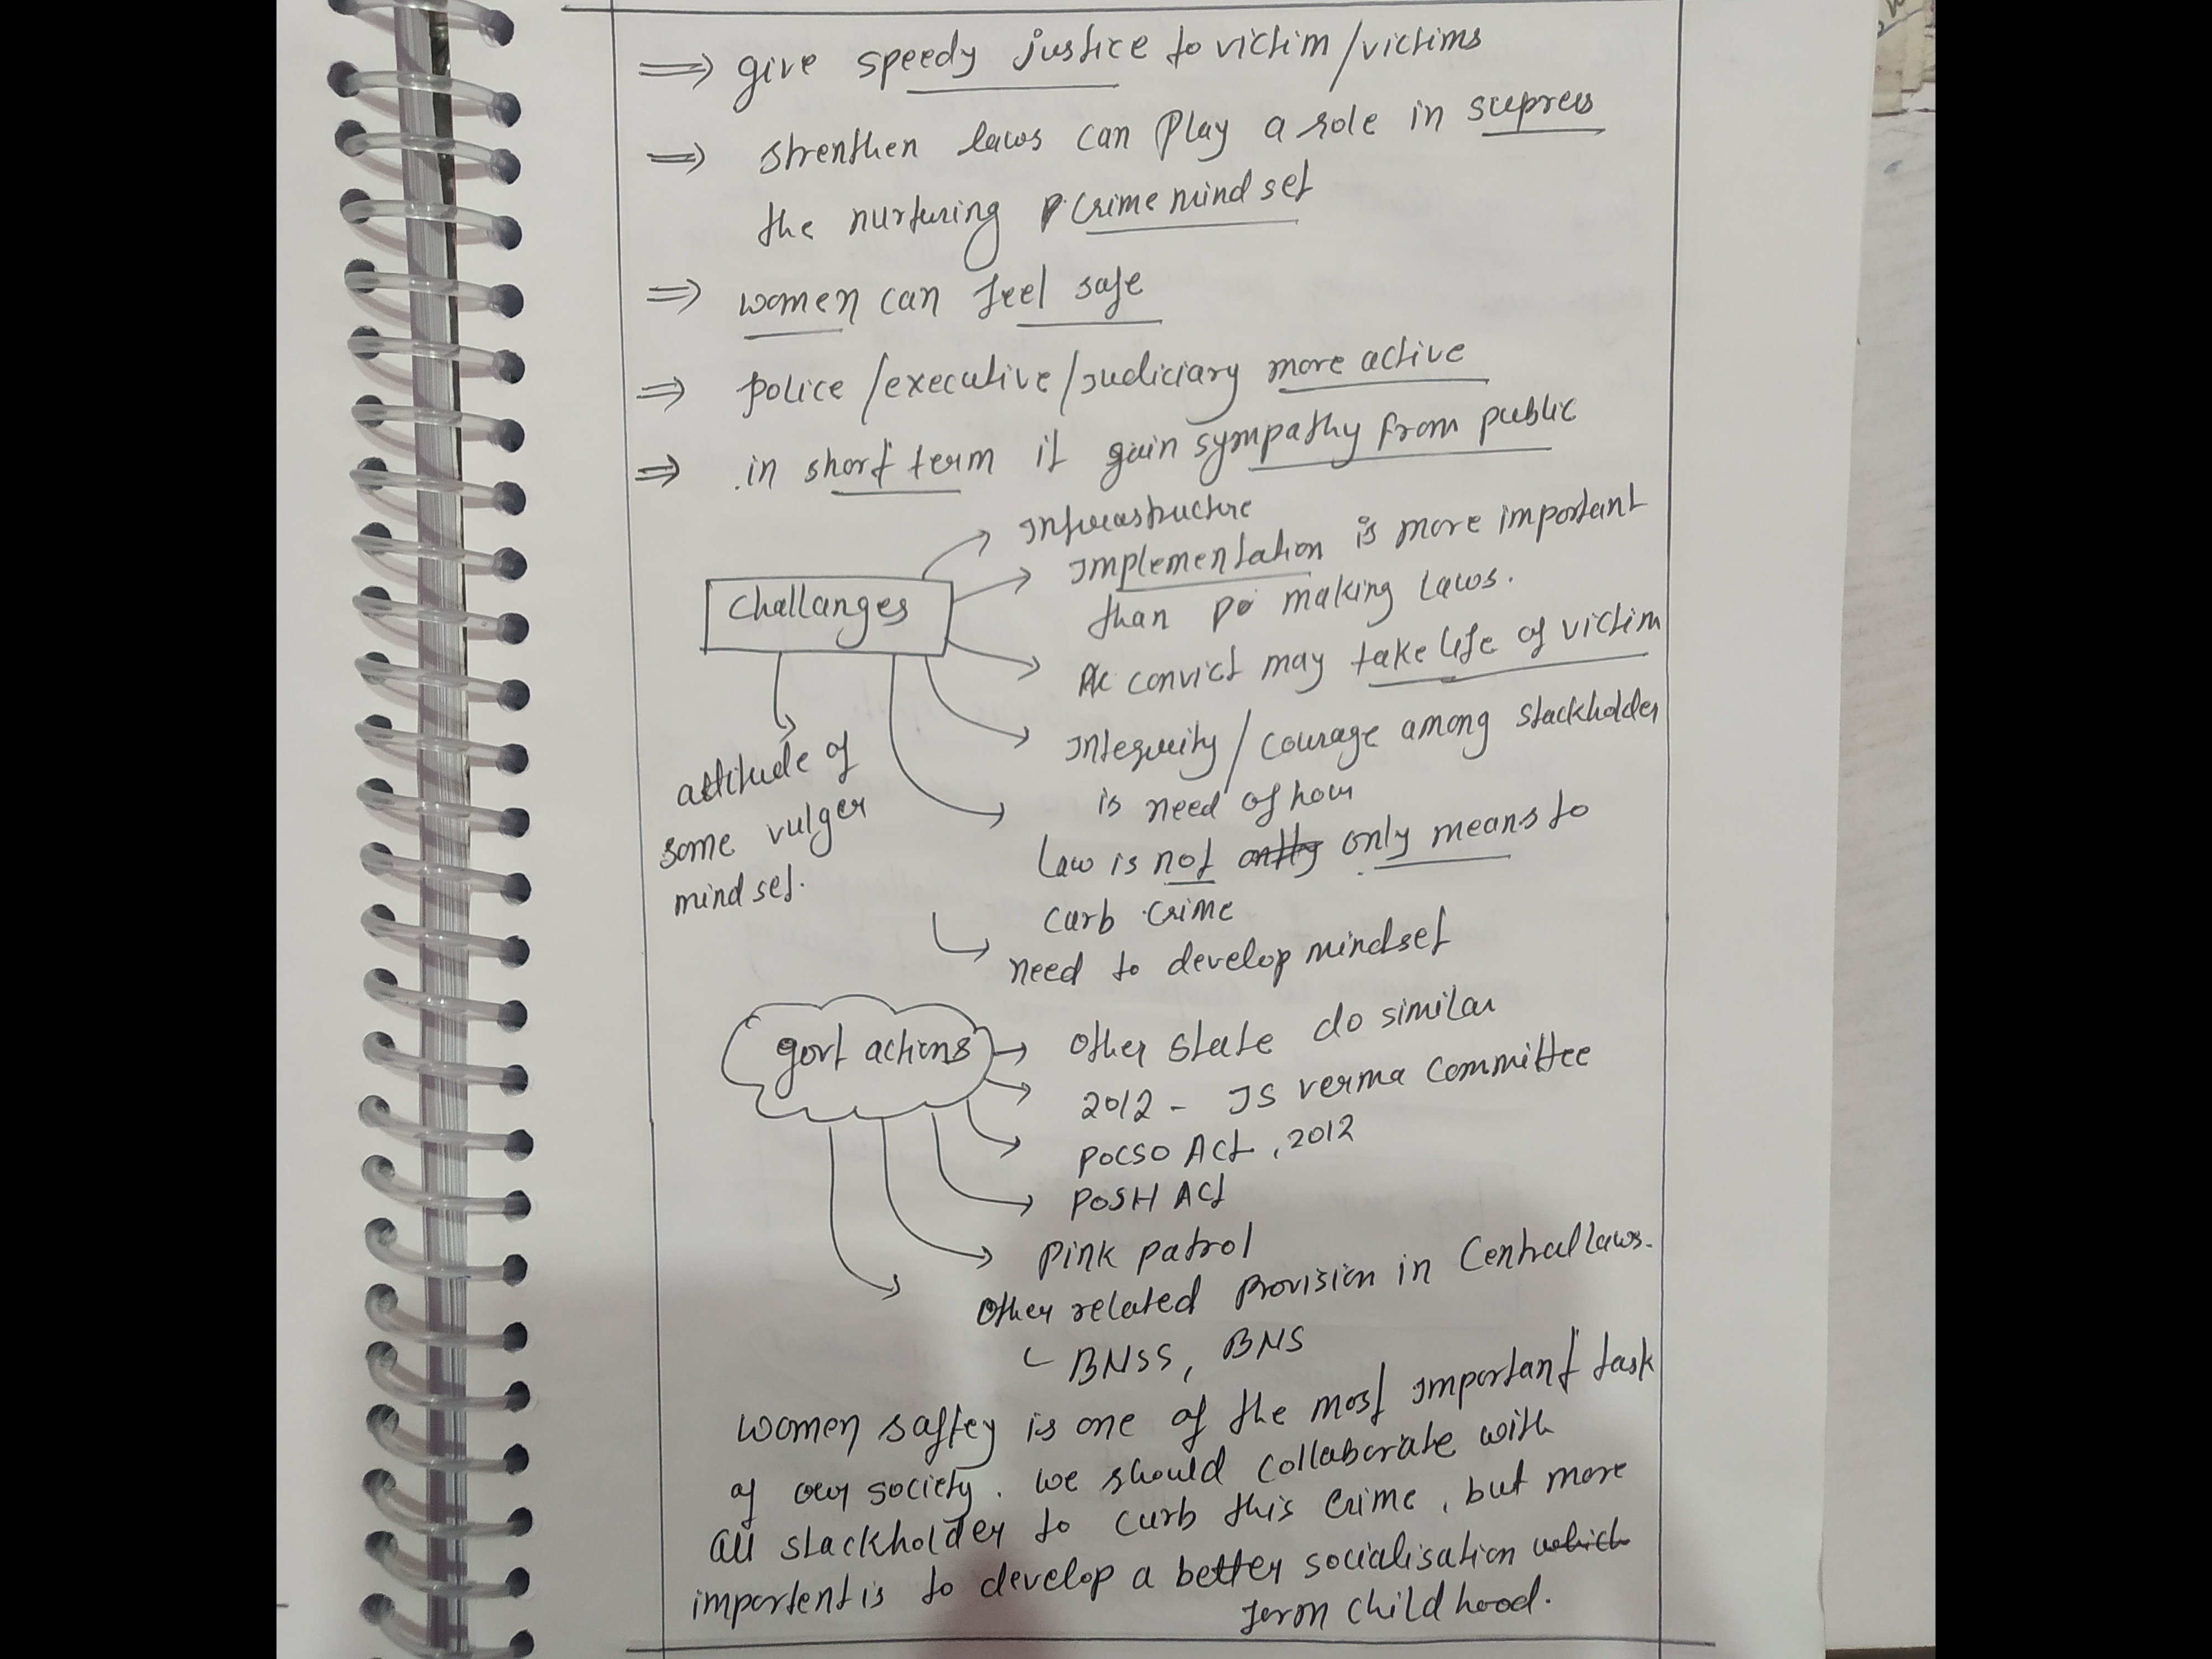 ⇒ give speedy justice to victim/victims
⇒ strenthen laws can play a role in supress
the nurturing crime mindset
⇒ women can feel safe
⇒ police/executive/judiciary more active
⇒ in short term it gain sympathy from public
Challanges
→ Infrastructure
→ Implementation is more important
than making laws.
→ convict may take life of victim
→ Integrity/courage among stackholder
is need of hour
→ law is not only means to
curb crime
→ need to develop mindset
attitude of
some vulger
mindset.
govt actions
→ other state do similar
→ 2012 - JS verma committee
→ POCSO Act, 2012
→ POSH Act
→ pink patrol
→ other related provision in Central laws.
BNSS, BNS
women saftey is one of the most important task
of our society. we should collaborate with
all stackholder to curb this crime, but more
importent is to develop a better socialisation
form childhood.